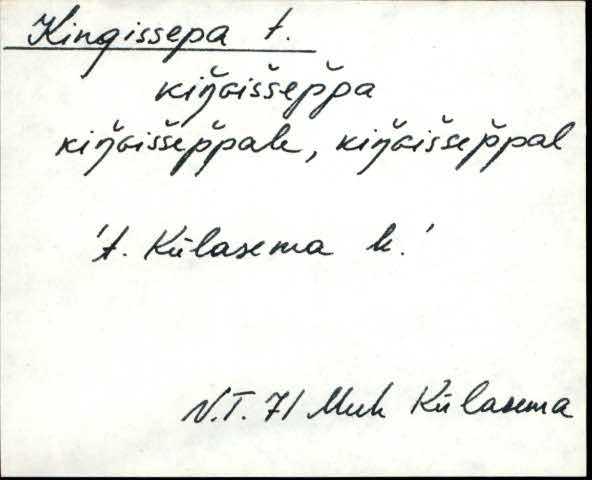 Kingissepa t.
kiŋ̆ɢišep̆pa
kiŋ̆ɢišep̆pale, kiŋ̆ɢišep̆pal
't. Külasema k.'
N.T. 71 Muh Külasema